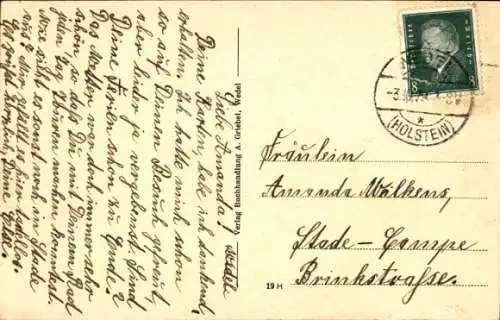 Liebe Amanda!
Deine Karte habe ich dankend
erhalten. Ich hatte mich schon
so auf Deinen Besuch gefreut,
aber leider ja vergebens. Sind
Deine Ferien schon zu Ende?
Das Wetter war doch immer sehr
schön, so daß Du mit Deinem Rad
jeden Tag Touren machen konntest.
Wie sieht es sonst noch in Stade
aus? Mir gefällt es hier tadellos.
Es grüßt herzlich Deine
Else.
Verlag Buchhandlung A. Griebel, Wedel
19 H
8
Deutsches Reich
WEDEL
(HOLSTEIN)
Fräulein
Amanda Wölkens,
Stade-Campe
Brinkstrasse.